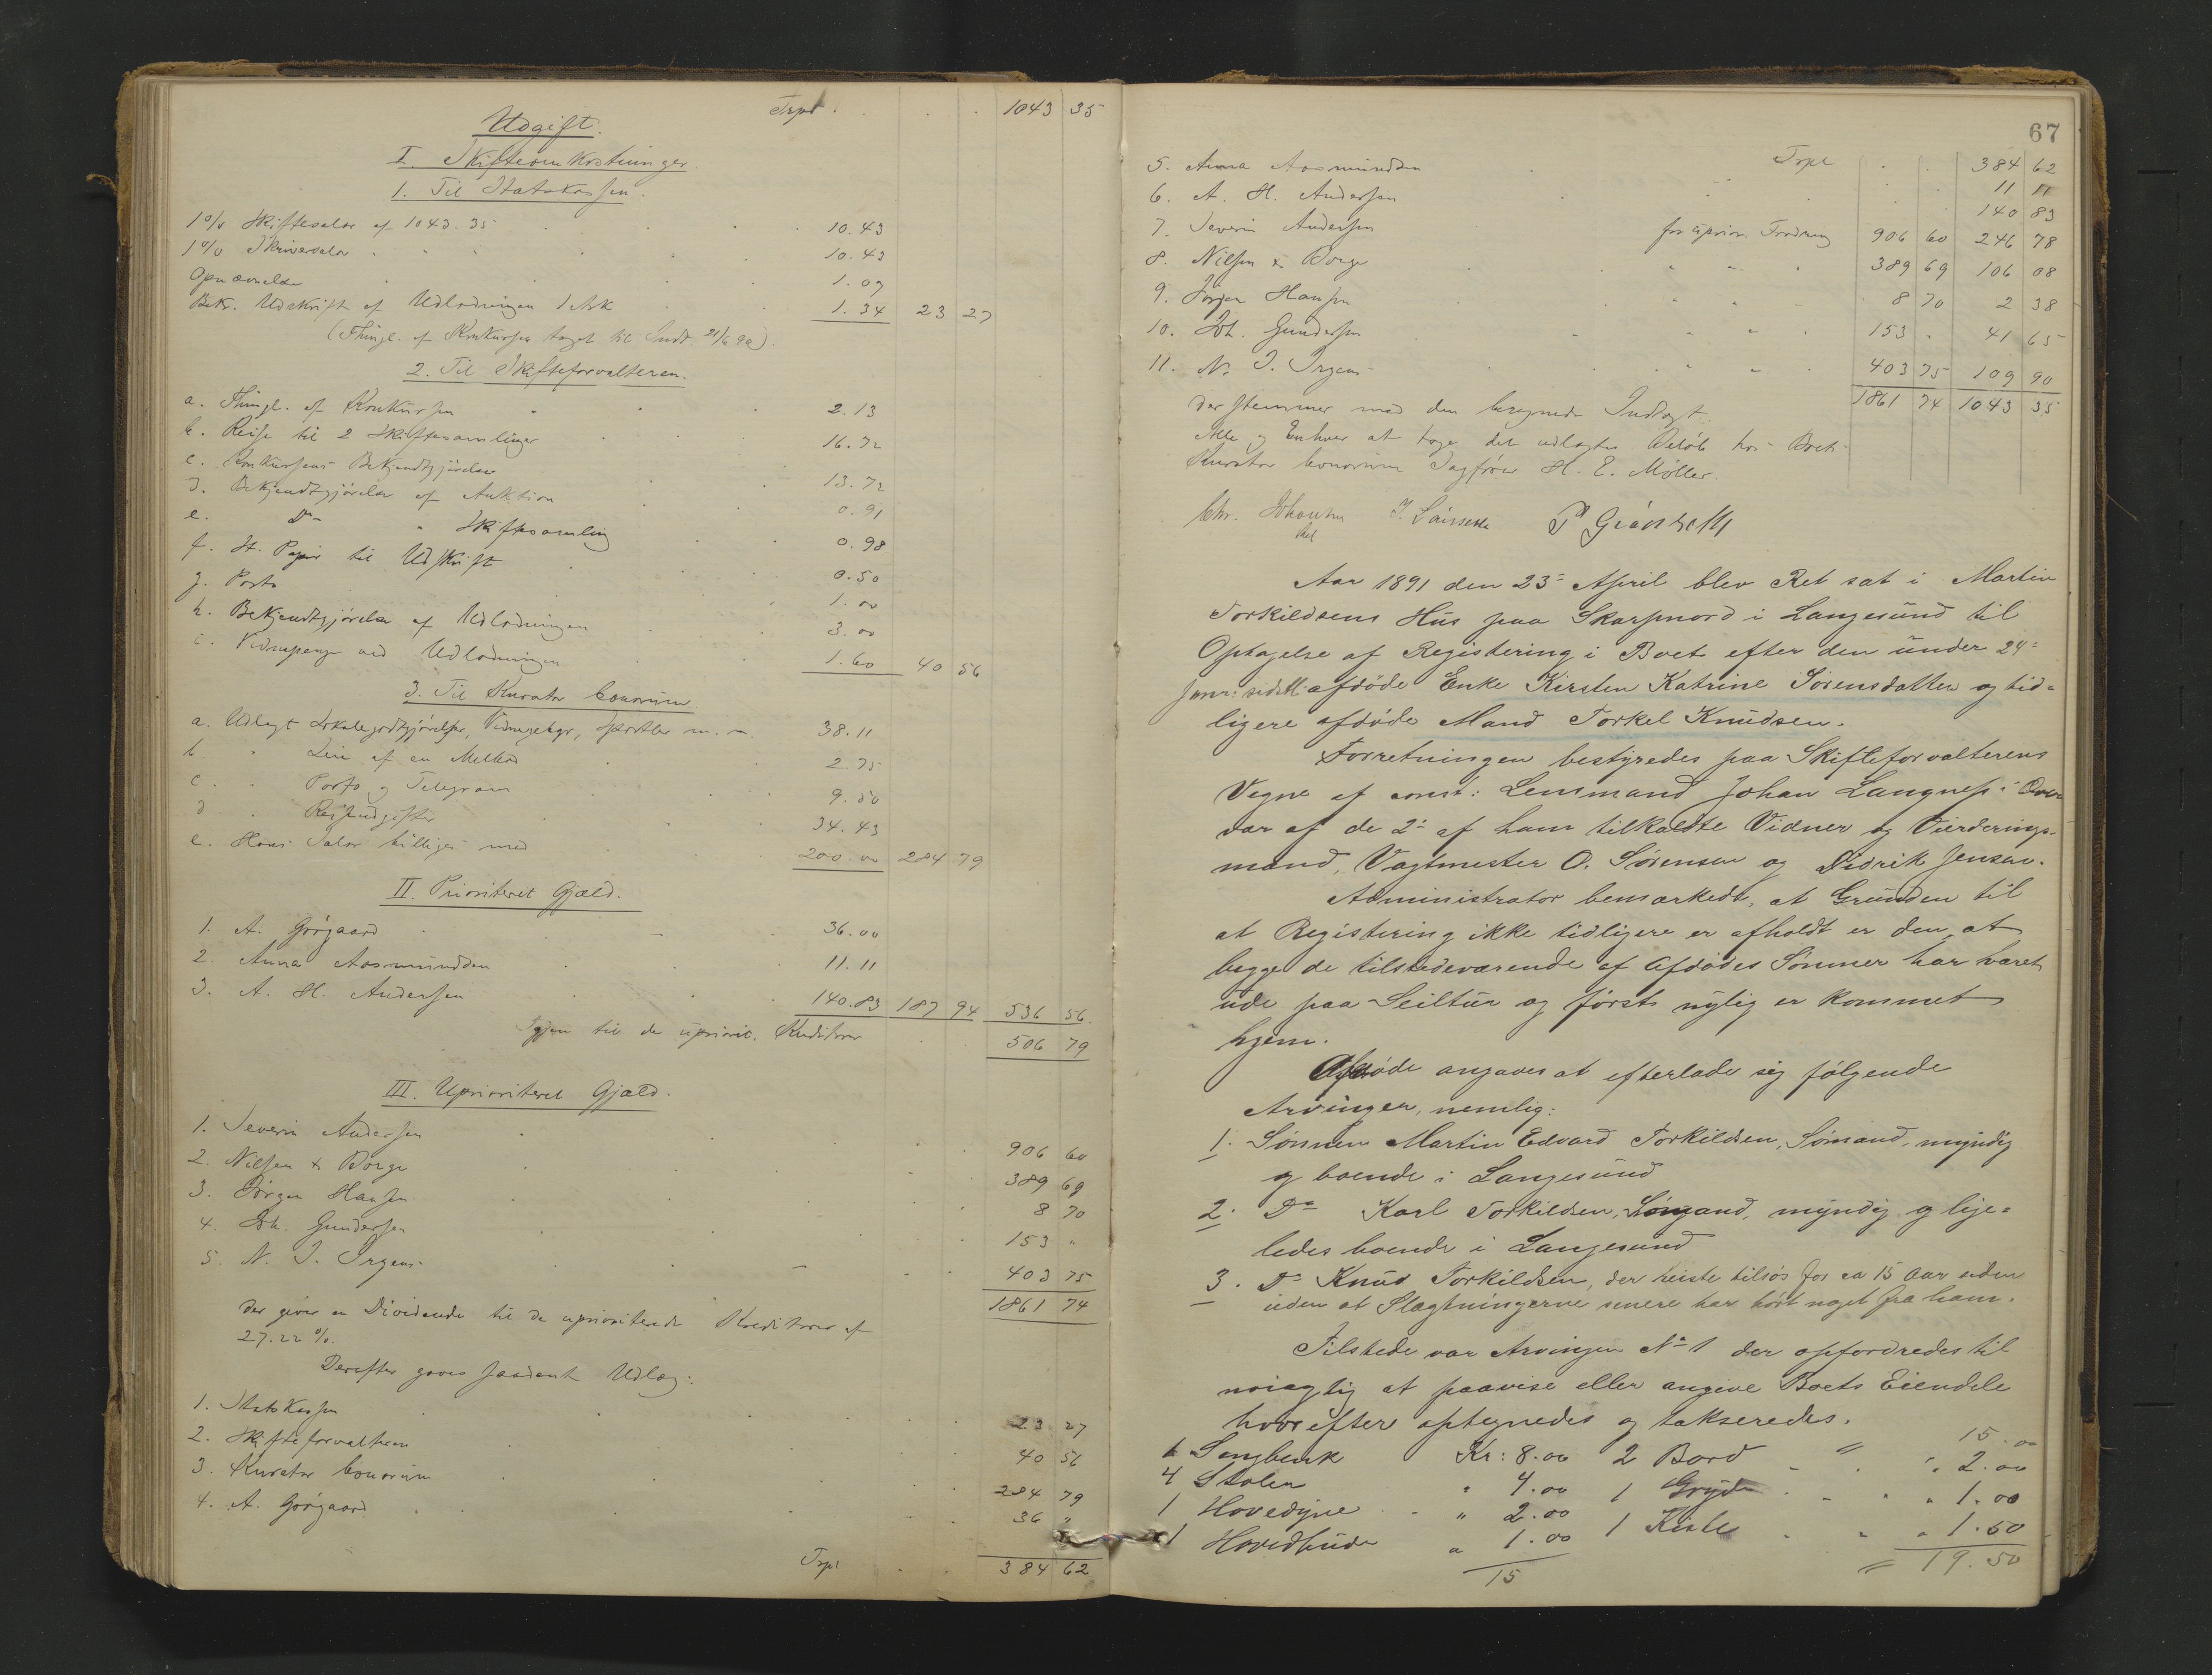 Trpt. 1043 35
Udgift.
I. Skifteomkostninger.
1. Til Statskassen.
1 % Skiftesalær af 1043.35 10.43
1 % Skriversalær 10.43
Opnævnelse 1.07
Bekr. Udskrift af Udlodningen 1 Ark 1.34 23 27
(Thingl. af Konkursen taget til Indt. 21/6 90).
2. Til Skifteforvalteren.
a. Thingl. af Konkursen 2.13
b. Reise til 2 Skiftesamlinger 16.72
c. Konkursens Bekjendtgjørelse 13.72
d. Bekjendtgjørelse af Auktion 0.91
e. Do " Skiftesamling 0.98
f. St. Papir til Udskrift 0.50
g. Porto 1.00
h. Bekjendtgjørelse af Udlodningen 3.00
i. Vidnepenge ved Udlodningen 1.60 40 56
3. Til Kurator bonorum.
a. Udlagt Lokalegodtgjørelse, Vidnegebyr, Sportler m. m. 38.11
b " Leie af en 2.75
c. " Porto og Telegram 9.50
d " Reiseudgifter 34.43
e. Hans Salær billiges med 200.00 284 79
II. Prioriteret Gjæld.
1. A. Gørgaard 36.00
2. Anna Aasmundsen 11.11
3. A. H. Andersen 140.83 187 94 536 56
Igjen til de upriorit. Kreditorer 506 79
III. Uprioriteret Gjæld.
1. Severin Andersen 906 60
2. Nilsen & Borge 389 69
3. Jørgen Hansen 8 70
4. Joh. Gundersen 153 "
5. N. J. Irgens 403 75
1861 74
der giver en Dividende til de uprioriterede Kreditorer af
27.22 %.
Derefter gaves saadant Udlæg:
1. Statskassen 23 27
2. Skifteforvalteren 40 56
3. Kurator bonorum 284 79
4. A. Gørgaard 36 "
Trpt 384 62
67
Trpt 384 62
5. Anna Aasmundsen 11 11
6. A. H. Andersen 140 83
7. Severin Andersen for uprior. Fordring 906 60 246 78
8. Nilsen & Borge " " 389 69 106 08
9. Jørgen Hansen " " 8 70 2 38
10. Joh. Gundersen " " 153 " 41 65
11. N. J. Irgens " " 403 75 109 90
1861 74 1043 35
der stemmer med den beregnede Indtægt.
Alle og Enhver at tage det udlagte Beløb hos Boets
Kurator bonorum Sagfører H. E. Møller.
Chr. Johansen
Aar 1891 den 23de April blev Ret sat i Martin
Torkildsens Hus paa Skarpnord i Langesund til
Optagelse af Registering i Boet efter den under 24-
Janr: sidstl. afdøde Enke Kirsten Katrine Sørensdatter og tid-
ligere afdøde Mand Torkel Knudsen.
Forretningen bestyredes paa Skifteforvalterens
Vegne af const: Lensmand Johan Langnes i Over
vær af de 2de af ham tilkaldte Vidner og Vurderings-
mænd, Vagtmester O. Sørensen og Didrik Jensen.
Administrator bemærkede, at Grunden til
at Registering ikke tidligere er afholdt er den, at
begge de tilstedeværende af Afdødes Sønner har været
ude paa Seiltur og først nylig er kommet
hjem.
Afdøde angaves at efterlade sig følgende
Arvinger, nemlig:
1. Sønnen Martin Edvard Torkildsen, Sømand, myndig
og boende i Langesund
2. Do Karl Torkildsen, Sømand, myndig og lige-
ledes boende i Langesund
3. Do Knud Torkildsen, der reiste tilsøs for ca 15 Aar siden
uden at Slægtningerne senere har hørt noget fra ham.
Tilstede var Arvingen No 1 der opfordredes til
nøiagtig at paavise eller angive Boets Eiendele
hvorefter optegnedes og takseredes.
1 Sengbenk Kr: 8.00
4 Stolen " 4.00
1 Hovedyne " 2.00
1 Hovedpude " 1.00
15
15.00
2 Bord " 2.00
1 Gryde " 1.00
1 Kiste " 1.50
19.50